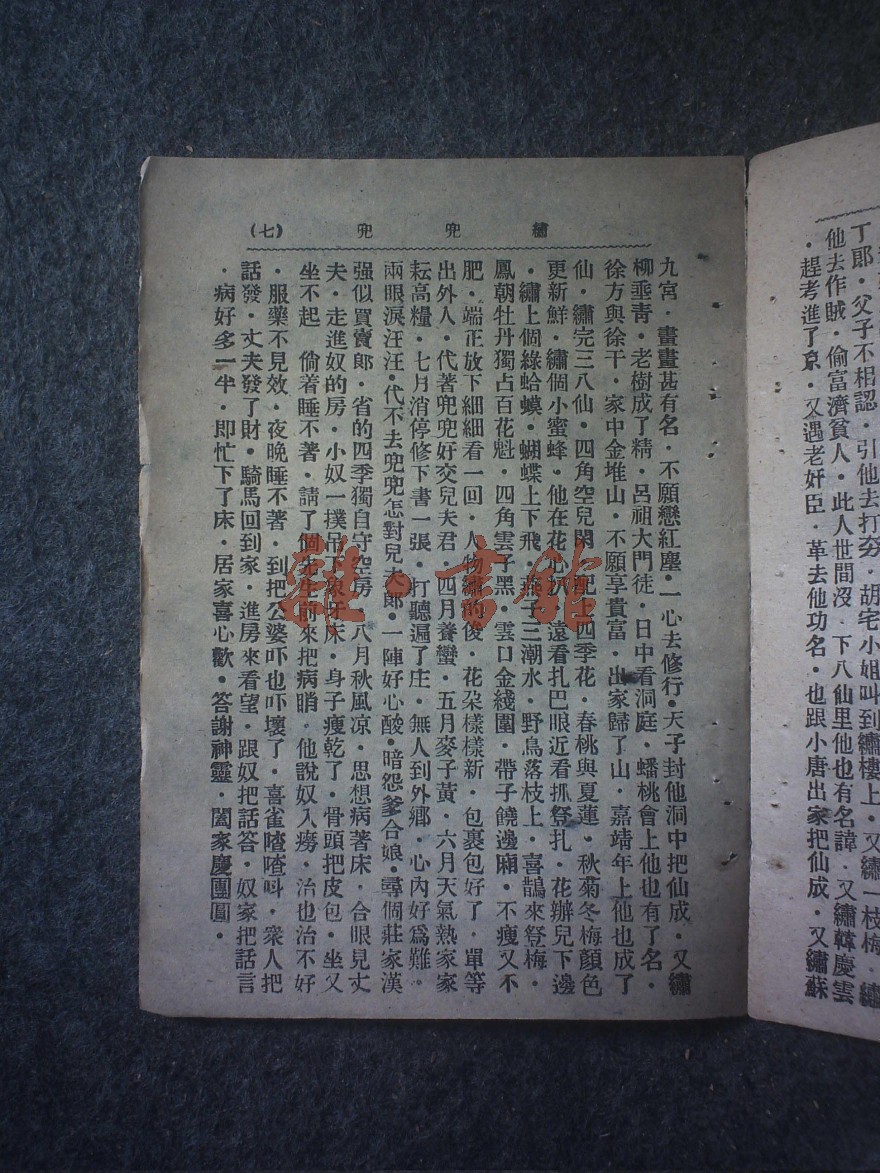 丁郎·父子不相認·引他去打夯·胡宅小姐叫到繡樓上·又繡一枝梅·繡
他去作賊·偷富濟貧人·此人世間沒·下八仙里他也有名諱·又繡韓慶雲
·趕考進了京·又遇老奸臣·革去他功名·也跟小唐出家把仙成·又繡蘇
繡兜兜(七)
九宮·畫畫甚有名·不願戀紅塵·一心去修行·天子封他洞中把仙成·又繡
柳垂青·老樹成了精·呂祖大門徒·日中看洞庭·蟠桃會上他也有了名·
徐方與徐干·家中金堆山·不願享貴富·出家歸了山·嘉靖年上他也成了
仙·繡完三八仙·四角空兒閑·配上四季花·春桃與夏蓮·秋菊冬梅顏色
更新鮮·繡個小蜜蜂·他在花心扒·遠看扎巴眼近看抓豋扎·花瓣兒下邊
·繡上個綠蛤蟆·蝴蝶上下飛·燕子三潮水·野鳥落枝上·喜鵲來豋梅·
鳳朝牡丹獨占百花魁·四角雲子黑·雲口金綫圍·帶子饒邊廂·不瘦又不
肥·端正放下細細看一回·人物繡的後·花朶樣樣新·包裹包好了·單等
出外人·代著兜兜好交兒夫君·四月養蠻·五月麥子黃·六月天氣熱家家
耘高糧·七月消停修下書一張·打聽遍了庄·無人到外鄉·心內好爲難·
兩眼淚汪汪·代不去兜兜怎對兒夫郎·一陣好心酸·暗怨爹合娘·尋個莊家漢
强似買賣郎·省的四季獨自守空房·八月秋風凉·思想病著床·合眼見丈
夫·走進奴的房·小奴一撲吊下象牙床·身子瘦乾了·骨頭把皮包·坐又
坐不起 倘着睡不著·請了個先生前來把病睄·他說奴入癆·治也治不好
·服藥不見效·夜晚睡不著·到把公婆吓也吓壞了·喜雀喳喳呌·衆人把
話發·丈夫發了財·騎馬回到家·進房來看望·跟奴把話答·奴家把話言
·病好多一半·即忙下了床·居家喜心歡·答謝神靈·闔家慶團圓·
雜·書館